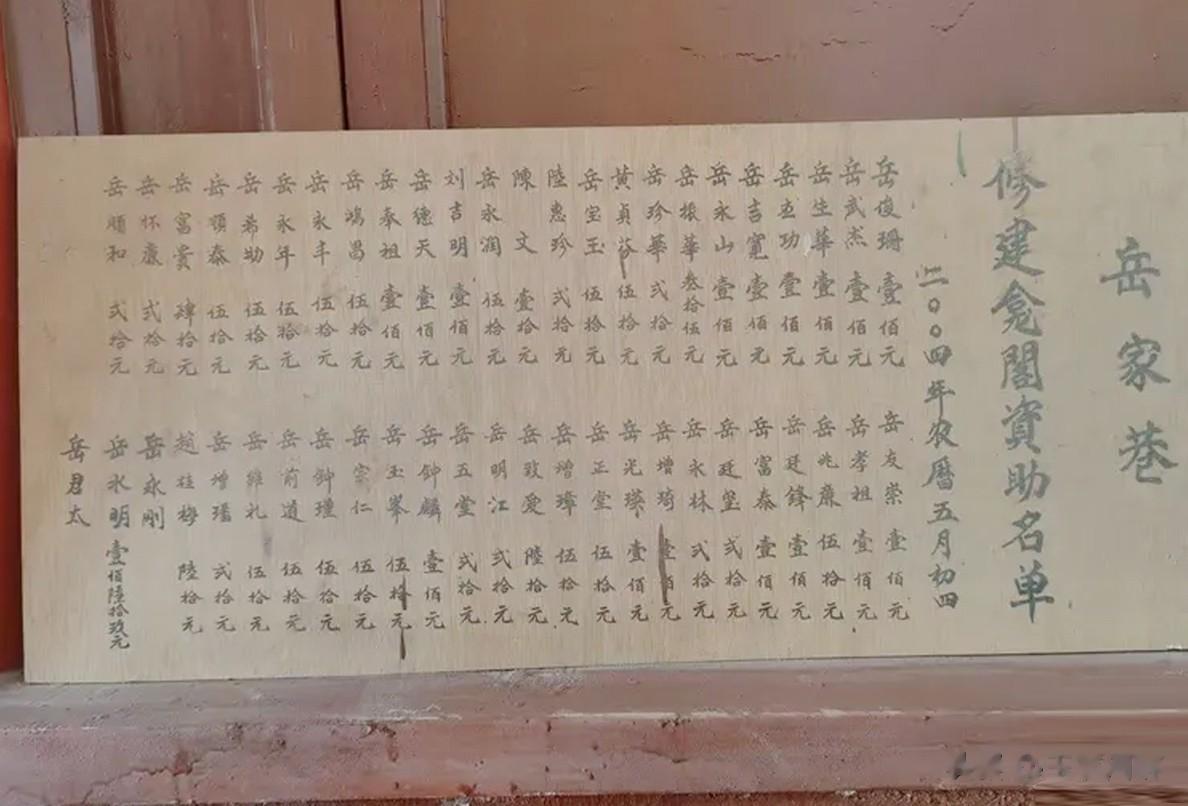 岳家巷
修建龛閣資助名单
二〇〇四年农曆五月初四
岳俊珊 壹佰元
岳武杰 壹佰元
岳生華 壹佰元
岳立功 壹佰元
岳吉寬 壹佰元
岳永山 壹佰元
岳振華 叁拾伍元
岳珍華 弍拾元
黄貞芬 伍拾元
岳宝玉 伍拾元
陸惠珍 弍拾元
陳文 壹佰元
岳永润 伍拾元
刘吉明 壹佰元
岳德天 壹佰元
岳奉祖 壹佰元
岳鴻昌 伍拾元
岳永丰 伍拾元
岳永年 伍拾元
岳希助 伍拾元
岳顿泰 伍拾元
岳富贵 肆拾元
岳怀廉 弍拾元
岳順和 弍拾元
岳友崇 壹佰元
岳孝祖 壹佰元
岳兆廉 伍拾元
岳廷鋒 壹佰元
岳富泰 壹佰元
岳廷玺 弍拾元
岳永林 弍拾元
岳增琦 壹佰元
岳光瑛 壹佰元
岳正堂 伍拾元
岳增璋 伍拾元
岳致爱 陸拾元
岳明江 弍拾元
岳五堂 弍拾元
岳钟麟 壹佰元
岳玉峯 伍拾元
岳宗仁 伍拾元
岳钟瑾 伍拾元
岳前道 伍拾元
岳維礼 伍拾元
岳增璠 弍拾元
趙桂梅 陸拾元
岳永刚
岳永明 壹佰陸拾玖元
岳君太